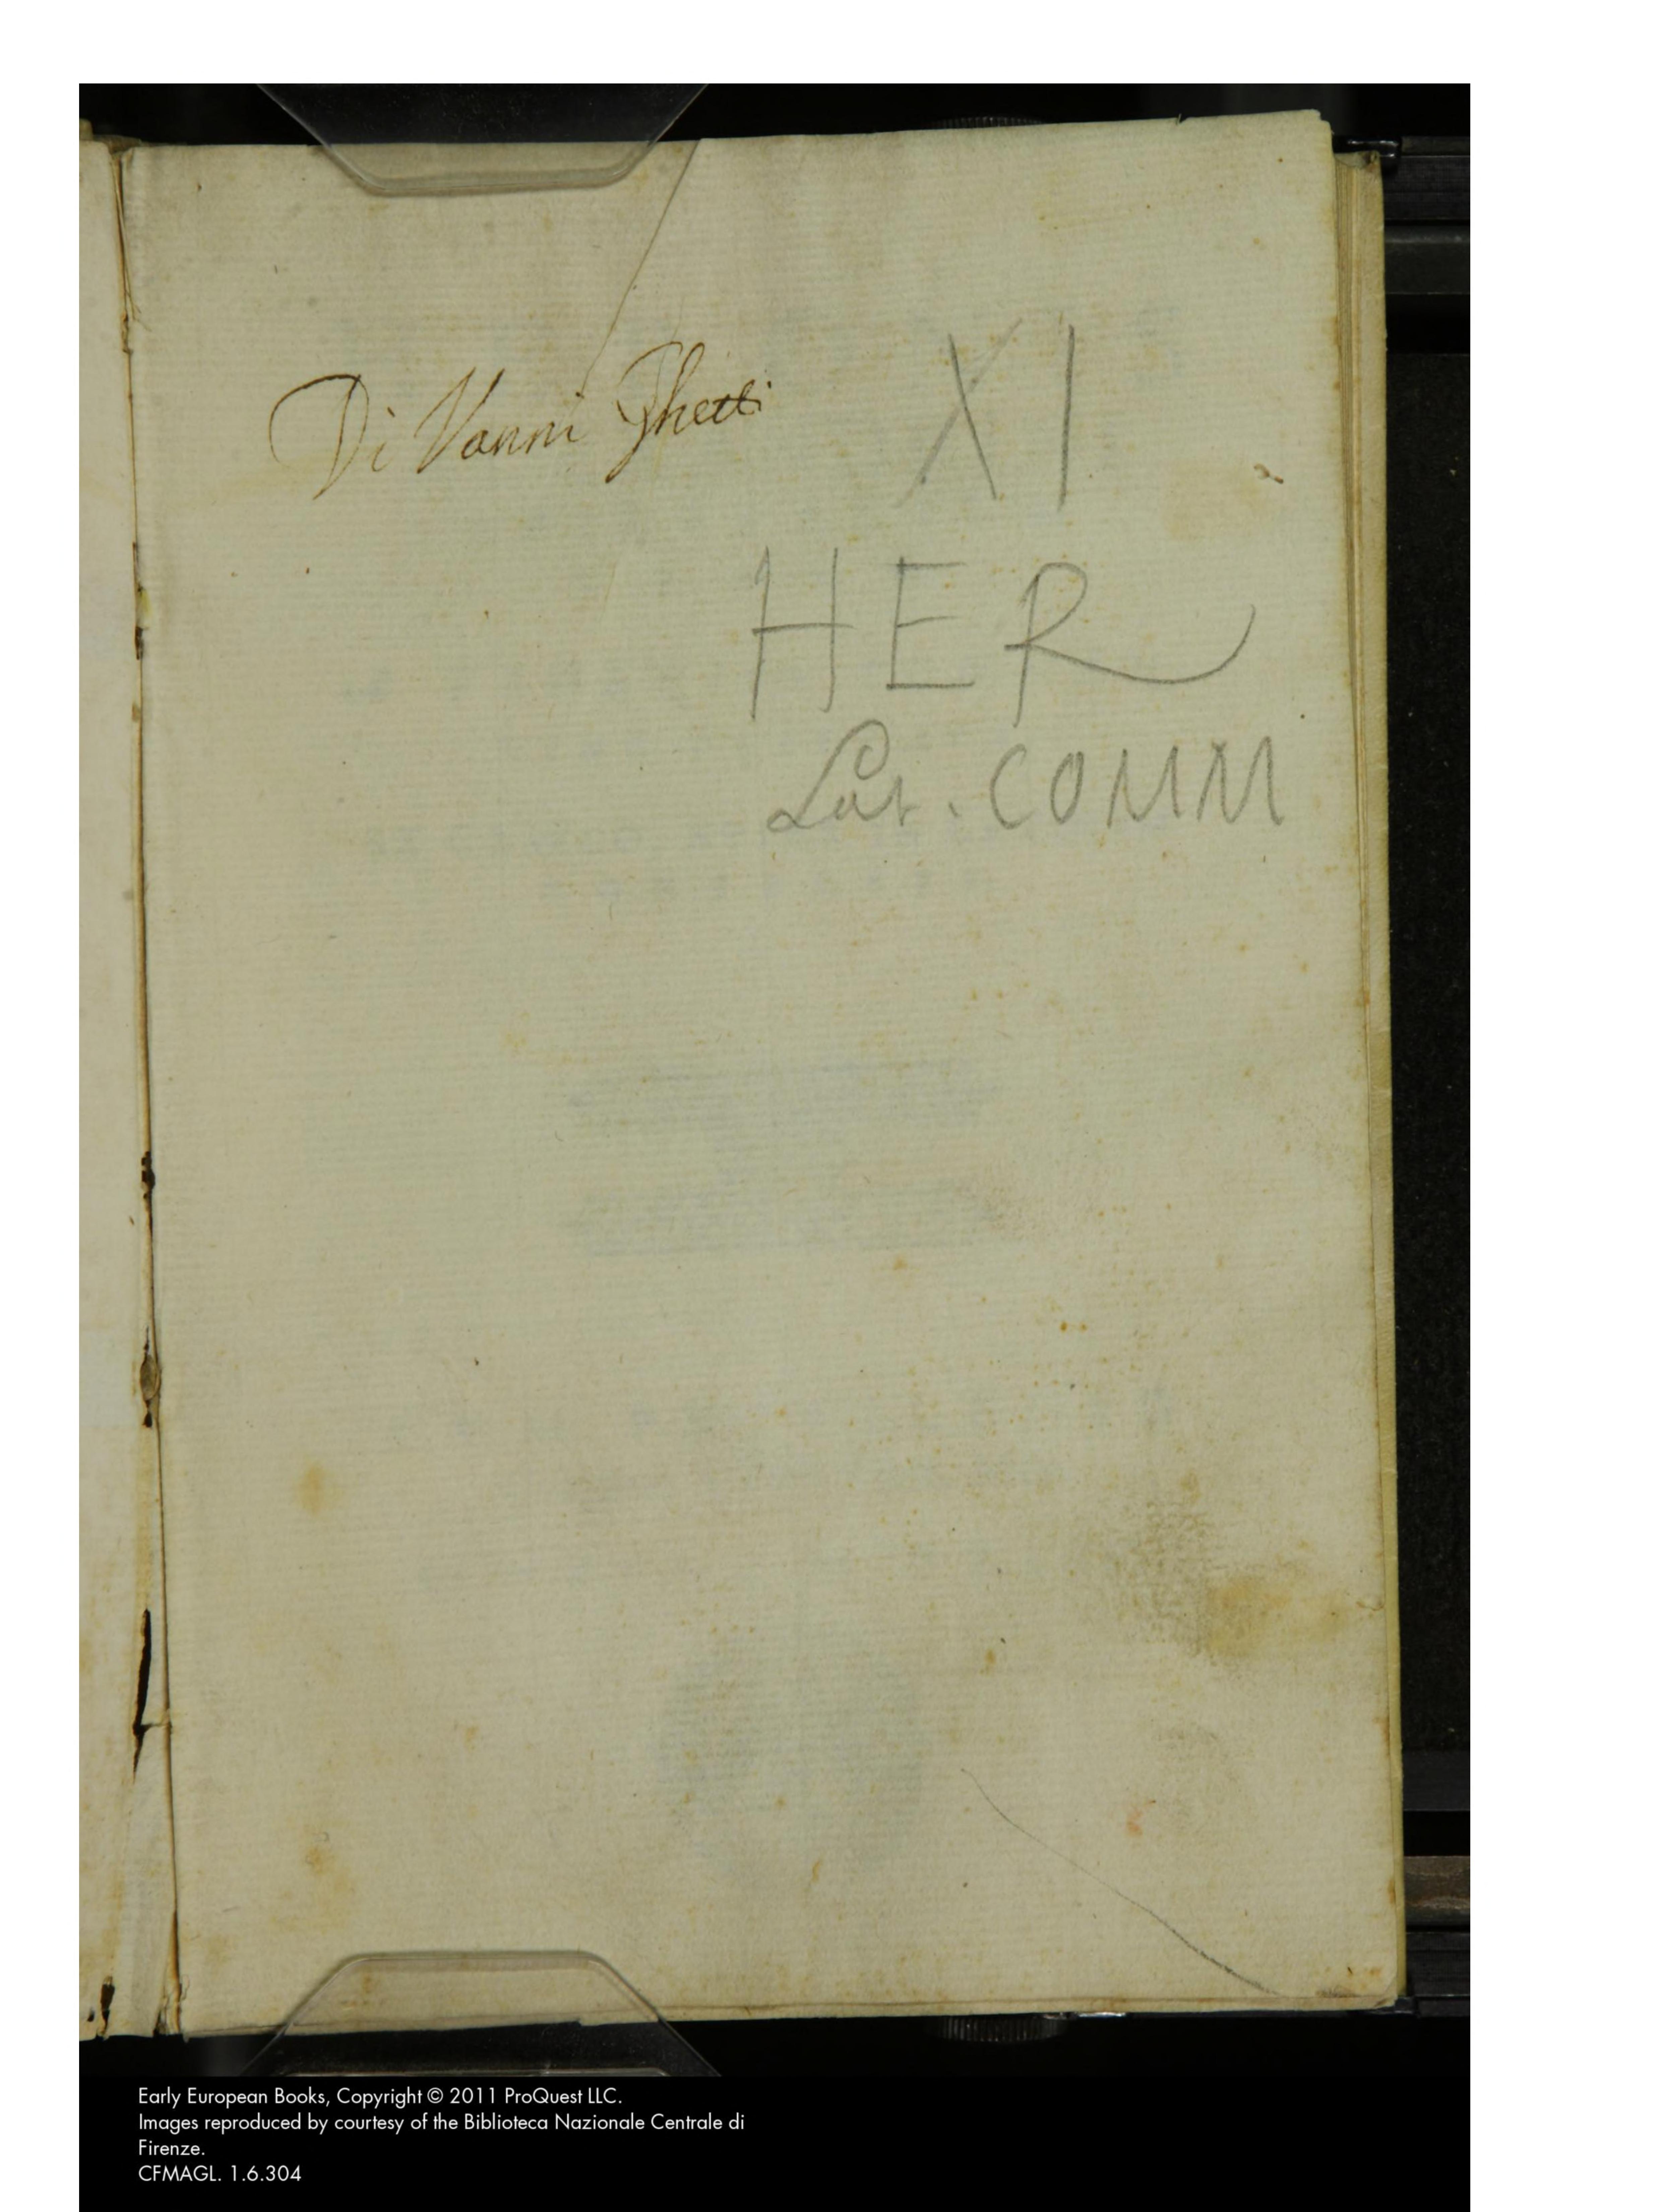 Di Vanni Ghetti
XI
HER
Lat. COMM
Early European Books, Copyright © 2011 ProQuest LLC.
Images reproduced by courtesy of the Biblioteca Nazionale Centrale di
Firenze.
CFMAGL. 1.6.304